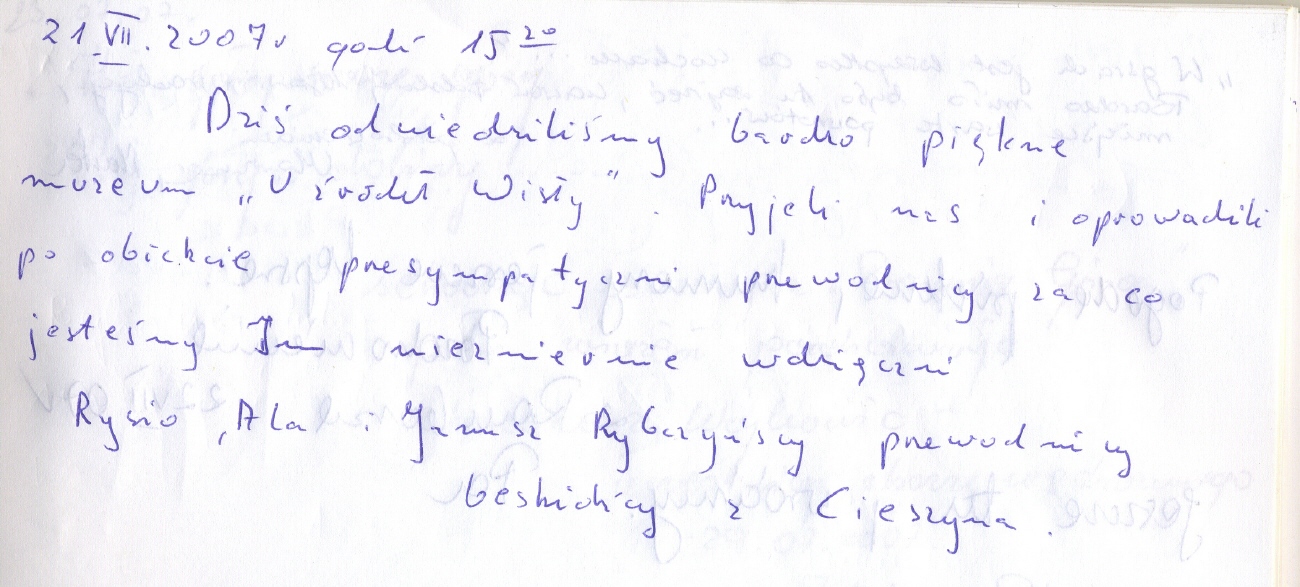 21.VII.2007r godz 15 20
Dziś odwiedziliśmy bardzo piękne
muzeum „U źródeł Wisły”. Przyjęli nas i oprowadzili
po obiekcie przesympatyczni przewodnicy za co
jesteśmy Im niezmiernie wdzięczni
Rysio, Ala i Janusz Rybczyńscy przewodnicy
beskidzcy z Cieszyna.